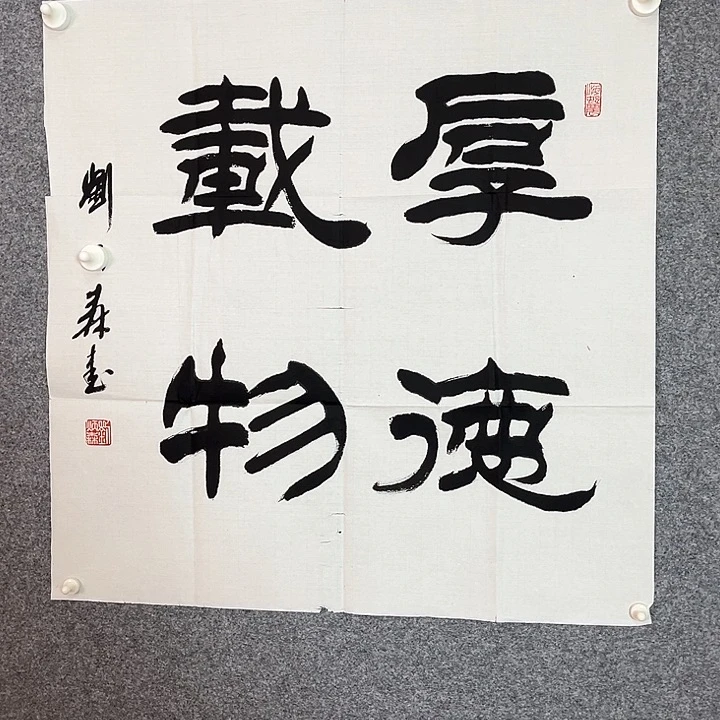 厚德
載物
劉 森書